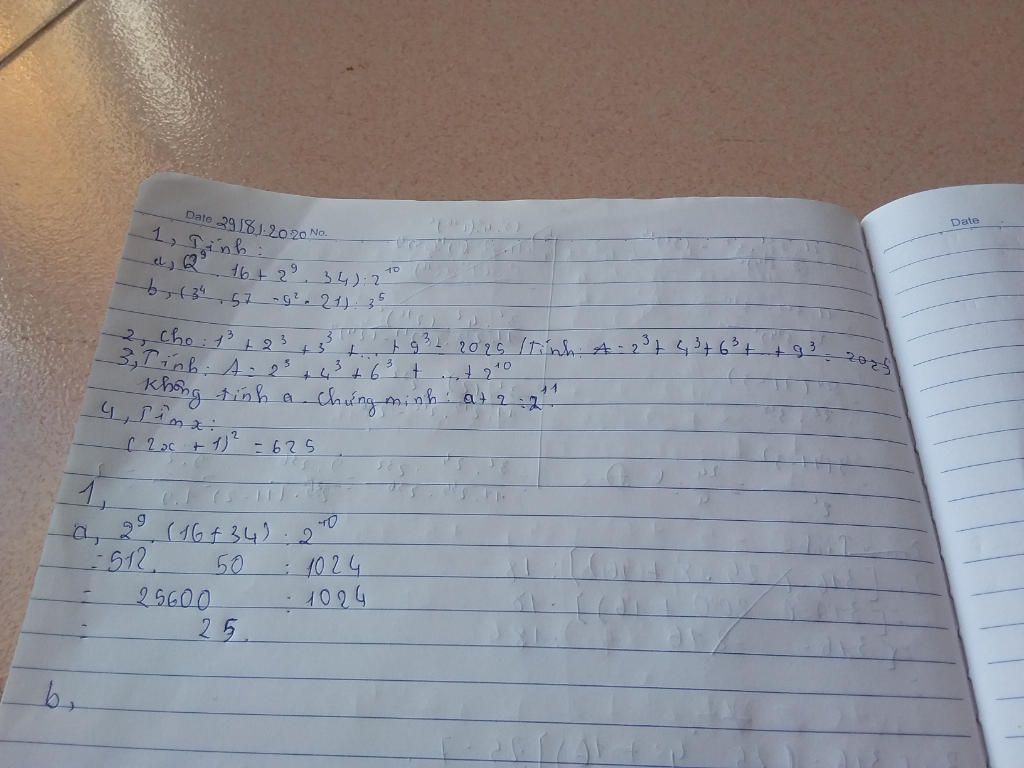 Date 29/8/2020 No.
1, Tính:
a, (2⁹ . 16 + 2⁹ . 34) : 2¹⁰
b, (3⁴ . 57 - 9² . 21) : 3⁵
2, Cho : 1³ + 2³ + 3³ + ... + 9³ = 2025 / Tính : A = 2³ + 4³ + 6³ + ... + 9³ = 2025
3, Tính : A = 2³ + 4³ + 6³ + ... + 2¹⁰
Không tính a. Chứng minh : a + 2 = 2¹¹.
4, Tìm x :
(2x + 1)² = 625
1,
a, 2⁹ . (16 + 34) : 2¹⁰
= 512 . 50 : 1024
= 25600 : 1024
= 25.
b,
Date